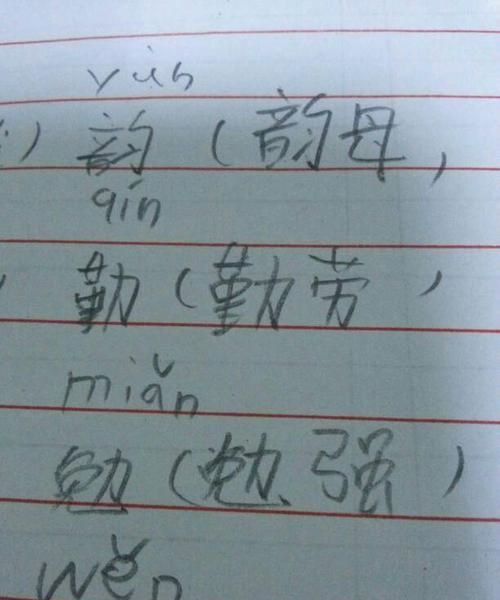 yùn
) 韵 (韵母,
qín
勤 (勤劳)
miǎn
勉 (勉强)
wěn